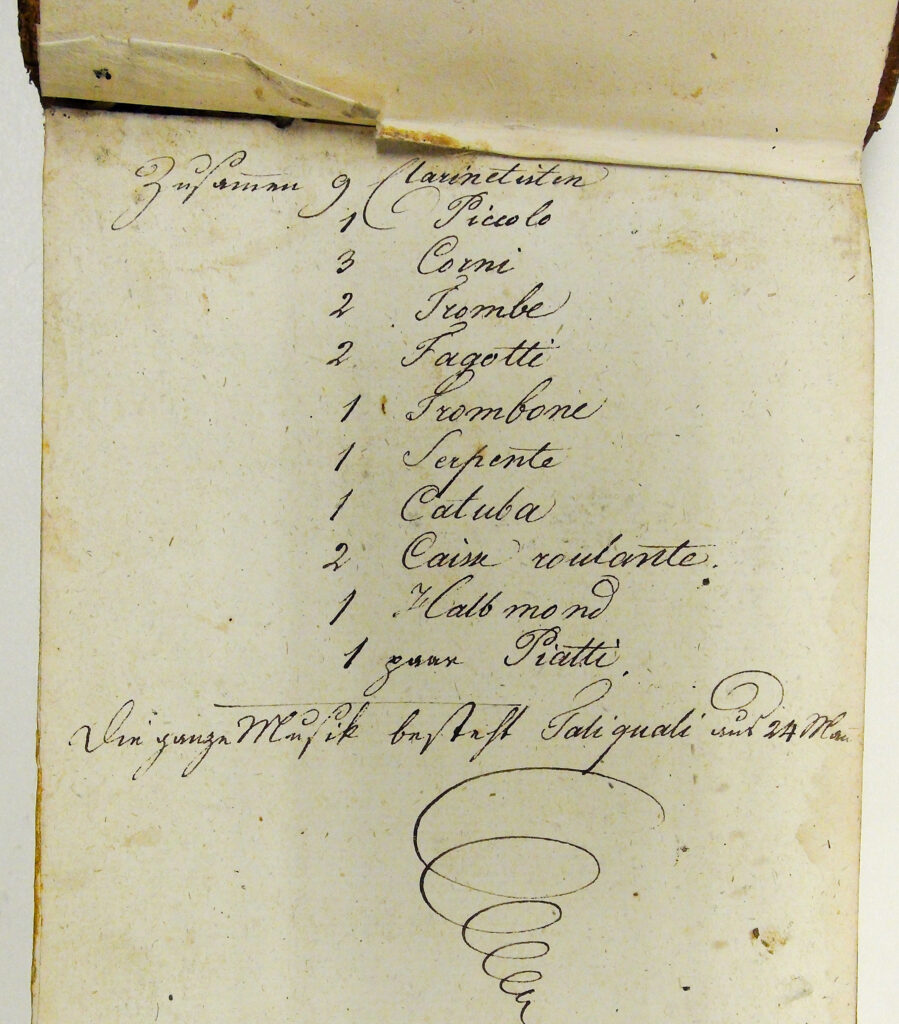 Zusammen 9 Clarinetisten
1 Piccolo
3 Corni
2 Trombe
2 Fagotti
1 Trombone
1 Serpente
1 Catuba
2 Caisse roulante.
1 Halbmond
1 paar Piatti
Die ganze Musik besteht Taliquali aus 24 Man